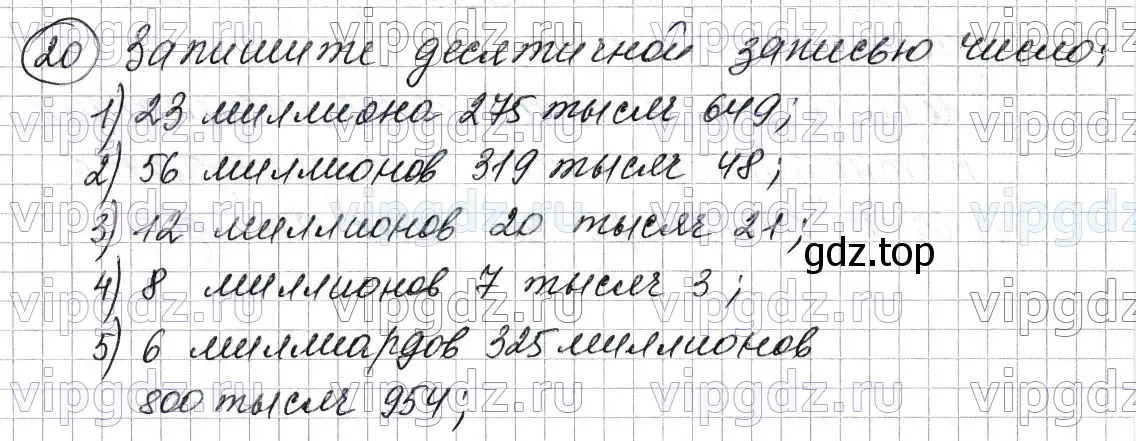 20 Запишите десятичной записью число:
1) 23 миллиона 275 тысяч 649;
2) 56 миллионов 319 тысяч 48;
3) 12 миллионов 20 тысяч 21;
gdz.top
4) 8 миллионов 7 тысяч 3;
5) 6 миллиардов 325 миллионов
800 тысяч 954;
vipgdz.ru